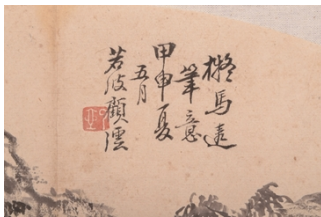 擬馬遠
筆意
甲申夏
五月
若波顧澐